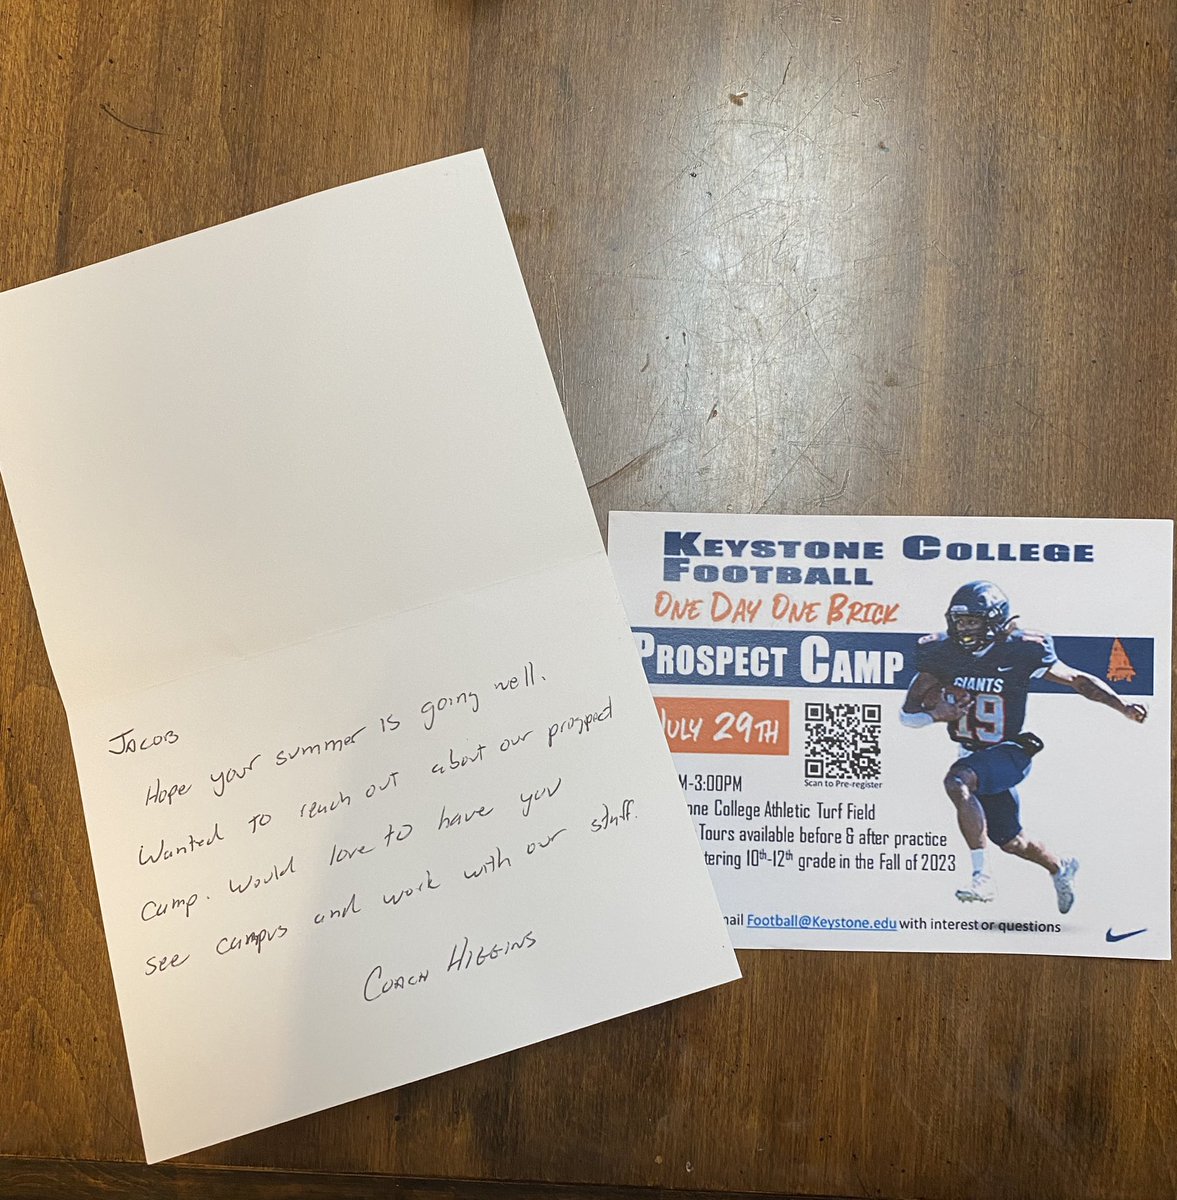 JACOB
Hope your summer is going well.
Wanted to reach out about our prospect
camp. Would love to have you
see campus and work with our staff.
COACH HIGGINS
KEYSTONE COLLEGE
FOOTBALL
ONE DAY ONE BRICK
PROSPECT CAMP
JULY 29TH
Scan to Pre-register
M-3:00PM
one College Athletic Turf Field
Tours available before & after practice
tering 10th-12th grade in the Fall of 2023
mail Football@Keystone.edu with interest or questions
GIANTS
19